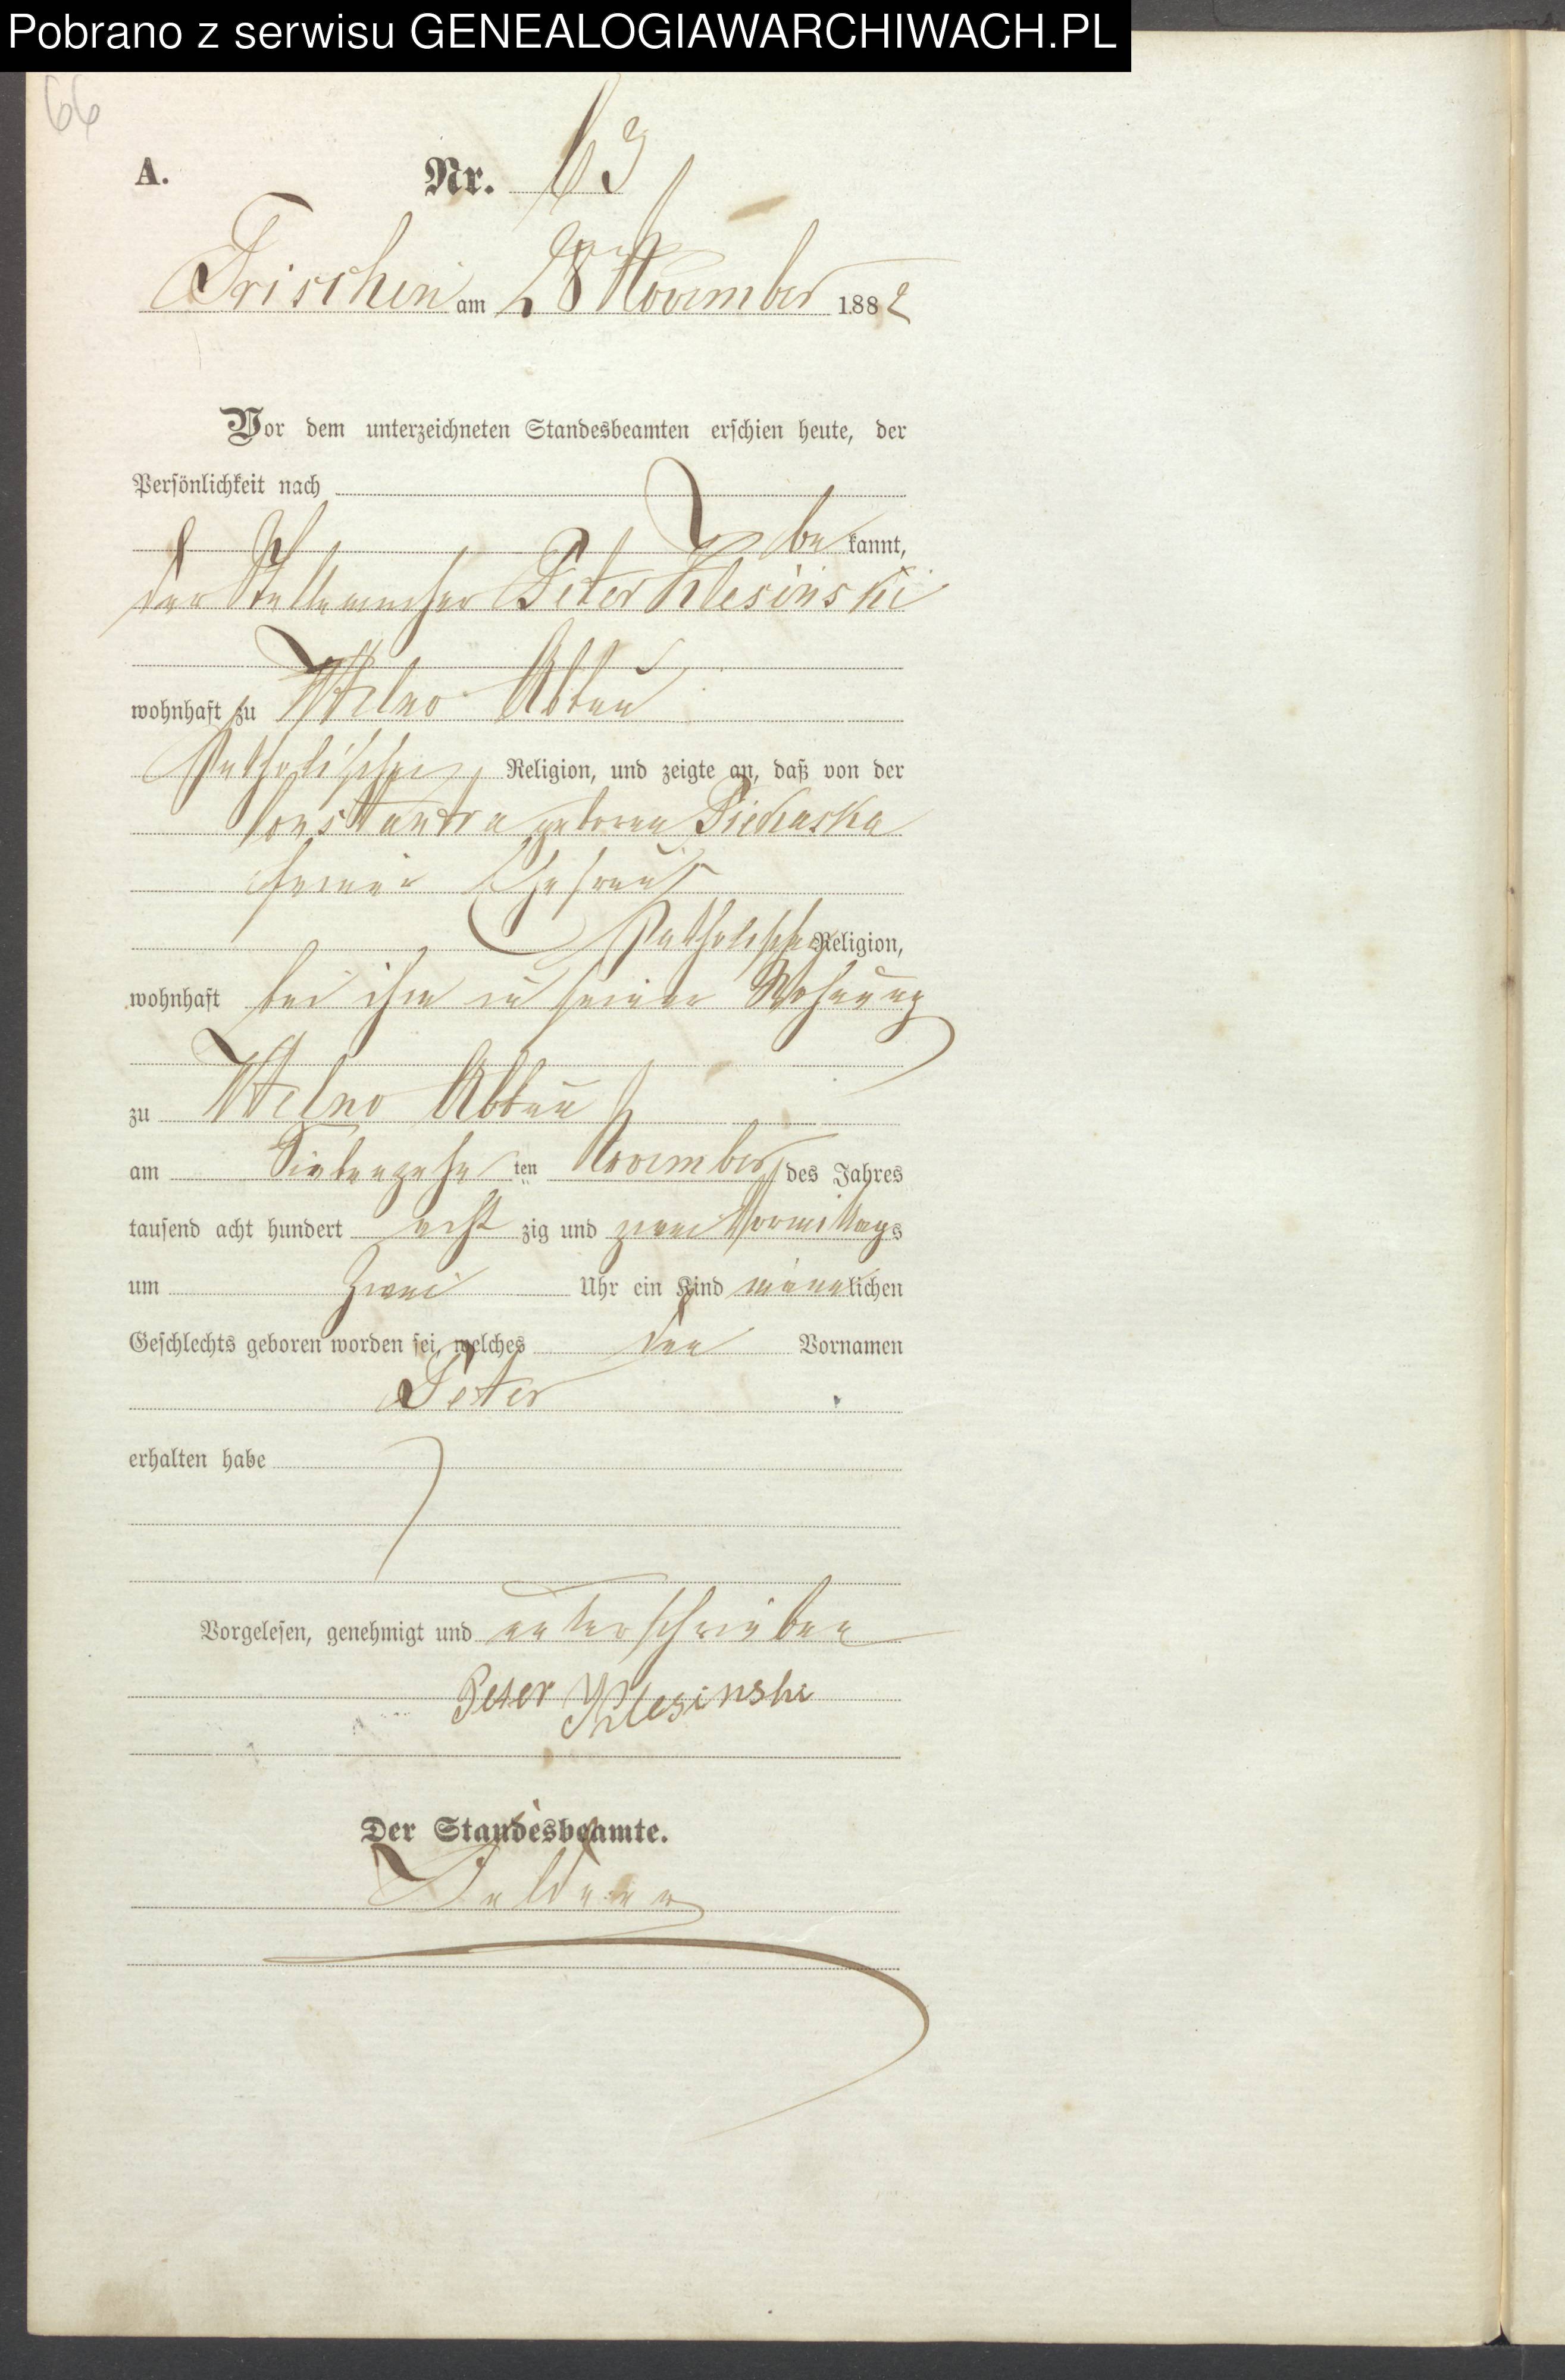 Pobrano z serwisu GENEALOGIAWARCHIWACH.PL
66
A. Nr. 63
Trischin am 28 November 1882
Vor dem unterzeichneten Standesbeamten erschien heute, der
Persönlichkeit nach
be kannt,
der Stellmacher Peter Klesinski
wohnhaft zu Wtelno Abbau
Katholischer Religion, und zeigte an, daß von der
Constantia geborne
seiner Ehefrau
Katholischer Religion,
wohnhaft bei ihm in seiner Wohnung
zu Wtelno Abbau
am Siebenzehn ten November des Jahres
tausend acht hundert acht zig und zwei Vormittags
um Zwei Uhr ein Kind männlichen
Geschlechts geboren worden sei, welches den Vornamen
Peter
erhalten habe
Vorgelesen, genehmigt und unterschrieben
Peter Klesinski
Der Standesbeamte.